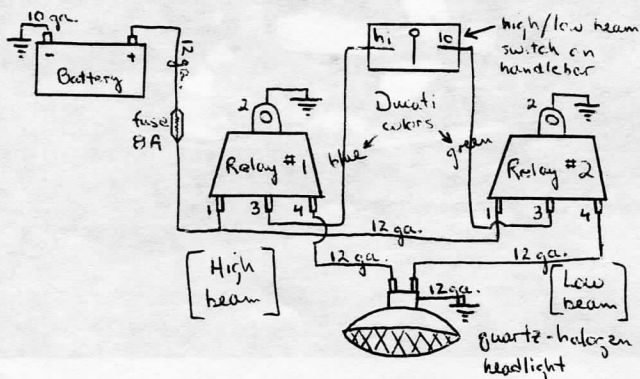 10 ga.
- +
Battery
12 ga.
fuse
8A
hi lo
high/low beam
switch on
handlebar
Ducati
colors
blue
green
2
Relay #1
1 3 4
2
Relay #2
1 3 4
12 ga.
12 ga.
12 ga.
12 ga.
High
beam
Low
beam
quartz-halogen
headlight